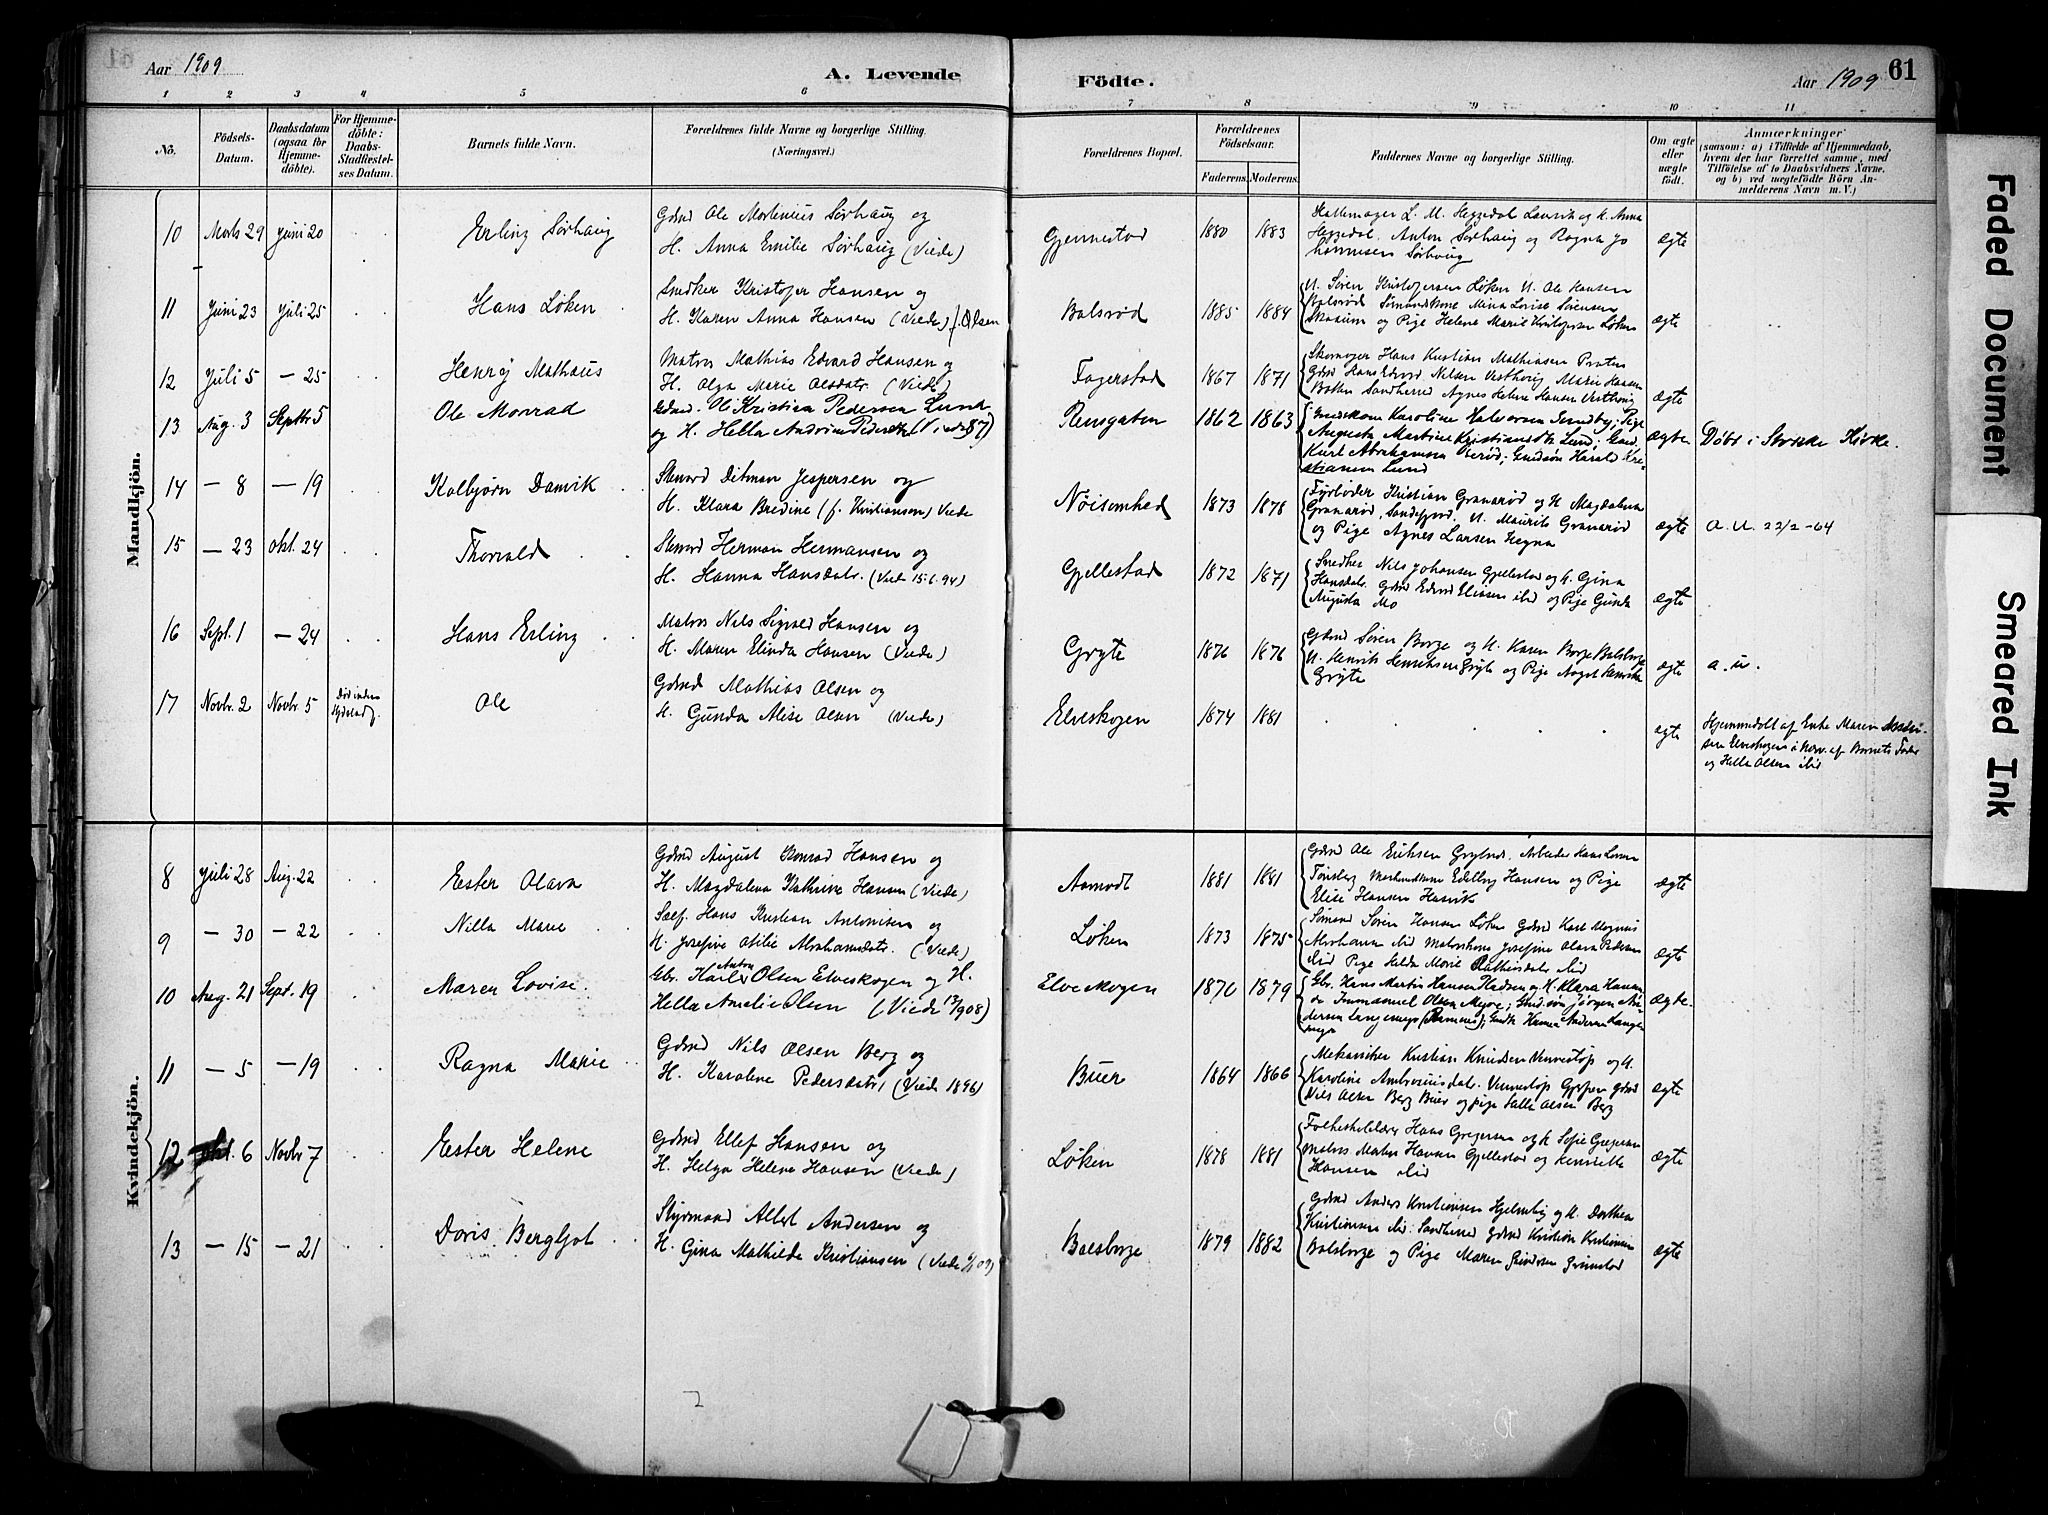 Aar 1909
A. Levende
Födte.
Aar 1909
61
1 2 3 4 5 6 7 8 9 10 11
No.
Födsels-
Datum.
Daabsdatum
(ogsaa for
Hjemme-
döbte).
For Hjemme-
döbte:
Daabs-
Stadfæstel-
ses Datum.
Barnets fulde Navn.
Forældrenes fulde Navne og borgerlige Stilling.
(Næringsvei.)
Forældrenes Bopæl.
Forældrenes
Födselsaar.
Faderens. Moderens.
Faddernes Navne og borgerlige Stilling.
Om ægte
eller
uægte
födt.
Anmærkninger
(saasom: a) i Tilfælde af Hjemmedaab,
hvem der har forrettet samme, med
Tilföielse af to Daabsvidners Navne.
og b) ved uægtefödte Börn An-
melderens Navn m. V.)
Mandkjön.
10 Marts 29 Juni 20
Erling Sørhaug
Gdmd Ole Martinius Sørhaug og
H. Anna Emilie Sørhaug (Viede)
Gjennestad
1880 1883
L. M. Heggedal Laurvik og K. Anna
Heggedal, Anton Sørhaug og Ragna Jo
hannesen Sørhaug
ægte
11 Juni 23 Juli 25
Hans Løken
Snedker Kristofer Hansen og
H. Karen Anna Hansen (Viede) f. Olsen
Balsrød
1885 1884
U. Søren Kristofersen Løken U. Ole Hansen
Balsrød Sømandskone Mina Lovise Sørensen
og Pige Helene Marie Kristofersen Løken
ægte
12 Juli 5 — 25
Henrij Mathæus
Matros Mathias Edvard Hansen og
H. Olga Marie Olsdatr. (Viede)
Fagerstad
1867 1871
Skomager Hans Kristian Mathiasen
Gdmd Hans Edvard Nilsen Vesthaug, Marie Hansen
Sandherred Agnes Helene Hansen Vesthaug
ægte
13 Aug. 3 Septbr 5
Ole Monrad
Gdmd. Ole Kristian Pedersen Lund
og H. Hella Andrine Pedersdtr (Viede 87)
Rensgaten
1862 1863
Karoline Halvorsen Sundby; Pige
Augusta Martine Kristiansdtr Lund; Gmd.
Kurt Abrahamsen Berød; Gmdsøn Harald Kri-
stiansen Lund
ægte
Døbt i Stokke Kirke.
14 — 8 — 19
Kolbjørn Damvik
Sømand Ditman Jespersen og
H. Klara Bredine (f. Kristiansen) Viede
Nøisomhed
1873 1878
Fyrbøder Kristian Granerød og H Magdalena
Granerød, Sandefjord. U. Maurits Granerød
og Pige Agnes Larsen Hegna
ægte
a. u. 22/2-64
15 — 23 Okt. 24
Thorvald
Sømand Herman Hermansen og
H. Hanna Hansdatr. (Viede 15.6.94)
Gjellestad
1872 1871
Snedker Nils Johansen Gjellestad og H. Gina
Hansdatr. Gdmd Edvard Eliasen ibid og Pige Gunda
Augusta Mo
ægte
16 Sept. 1 — 24
Hans Erling
Matros Nils Sigvald Hansen og
H. Maren Elinda Hansen (Viede)
Gryte
1876 1876
Gdmd Søren Borge og H. Karen Borge Balsborge
U. Henrik Henriksen Gryte og Pige
Gryte
ægte
a. u.
17 Novbr. 2 Novbr. 5
Død inden
Ole
Gdmd Mathias Olsen og
H. Gunda Alise Olsen (Viede)
Elveskogen
1874 1881
ægte
Hjemmedøbt af Enke Maren
Elveskogen i Nærv. af Barnets Fader
og Hella Olsen ibid
Kvindekjön.
8 Juli 28 Aug. 22
Ester Olava
Gdmd August Konrad Hansen og
H. Magdalena Kathrine Hansen (Viede)
Aamodt
1881 1881
Gdmd Ole Eriksen Arbeider Hans Larsen
Tønsberg Edelbog Hansen og Pige
Elise Hansen Hasvik
ægte
9 — 30 — 22
Nilla Marie
Sølf. Hans Kristian Antonisen og
H. Josefine Otilie Abrahamsdatr. (Viede)
Løken
1873 1875
Sømand Søren Hansen Løken Gdmd Karl Magnus
Abrahamsen ibid Matroskone Josefine Olava Pedersen
ibid Pige Hilda Marie Mathisdatr ibid
ægte
10 Aug. 21 Sept. 19
Maren Lovise.
Gbr. Karl Anton Olsen Elveskogen og H.
Hella Amelie Olsen (Viede 1908)
Elveskogen
1870 1879
Gbr. Hans Martin Hansen og H. Klara Hansen
do Immanuel Olsen Myre; Gmd.søn Jørgen An-
dersen Langemyr; Gmdtr Hanna Andersen Lange
myr
ægte.
11 — 5 — 19
Ragna Marie
Gdmd Nils Olsen Berg og
H. Karoline Pedersdatr. (Viede 1896)
Buer
1864 1866
Mekaniker Kristian Knudsen Vennestøp og H.
Karoline Ambrosiusdatr. Vennestøp Gjerpen Gdmd
Nils Olsen Berg Buer og pige Olsen Berg
ægte
12 Okt. 6 Novbr 7
Ester Helene
Gdmd Ellef Hansen og
H. Helga Helene Hansen (Viede)
Løken
1878 1881
Folkeskolelærer Hans Gregersen og H Sofie Gregersen
Matros Hansen Gjellestad og Henriette
Hansen ibid
ægte
13 — 15 — 21
Doris Bergljot
Styrmand Albert Andersen og
H. Gina Mathilde Kristiansen (Viede
Balsborge
1879 1882
Gdmd Anders Kristiansen Hjelmby og H. Dorthea
Kristiansen ibid. Sandherred Gdmd Kristian Kristiansen
Balsborge og Pige Maren Grimstad
ægte
Faded Document
Smeared Ink